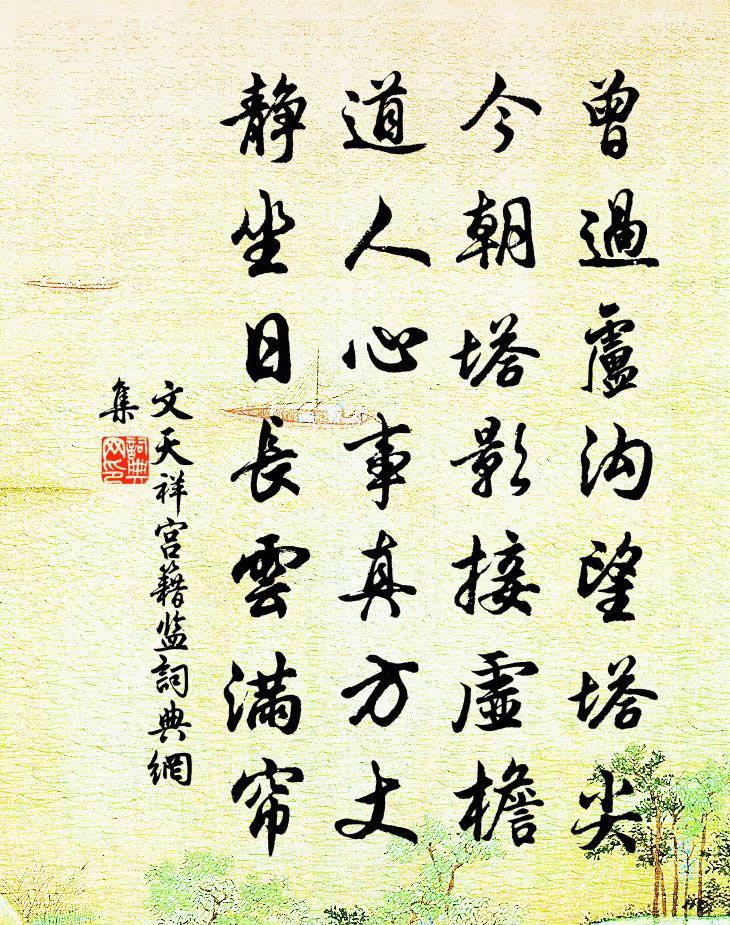 曾過盧沟望塔尖
今朝塔影接虛檐
道人心事真方丈
静坐日長雲满帘
文天祥宫籍监詞典網
集
詞典
网印